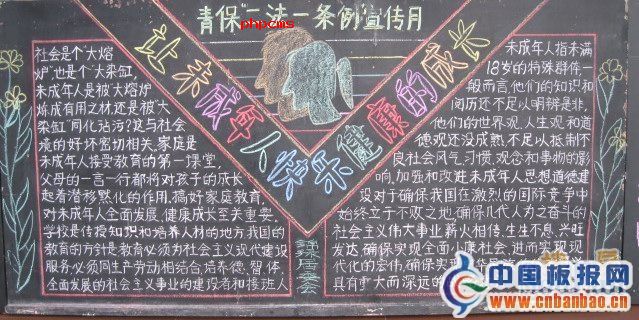 青保“二法一条例”宣传月
phpcms
让未成年人快乐健康的成长
社会是个“大熔
炉”也是个“大染缸，
未成年人是被“大熔炉”
炼成有用之材还是被“大
染缸”同化玷污？这与社会
境的好坏密切相关。家庭是
未成年人接受教育的第一课堂，
父母的一言一行都将对孩子的成长
起着潜移默化的作用。搞好家庭教育，
对未成年人全面发展、健康成长至关重要。
学校是传授知识和培养人材的地方我国的
教育的方针是教育必须为社会主义现代建设
服务，必须同生产劳动相结合，培养德、智、体、
全面发展的社会主义事业的建设者和接班人
未成年人指未满
18岁的特殊群体，一
般而言他们的知识和
阅历还不足以明辨是非，
他们的世界观、人生观和道
德观还没成熟，不足以抵制不
良社会风气、习惯、观念和事物的影
响，加强和改进未成年人思想道德建
设对于确保我国在激烈的国际竞争中
始终立于不败之地，确保几代人为之奋斗的
社会主义伟大事业薪火相传，生生不息，兴旺
发达，确保实现全面小康社会，进而实现现
代化的宏伟，确保实现
具有重大而深远的
居委会
中国板报网
www.cnbanbao.cn